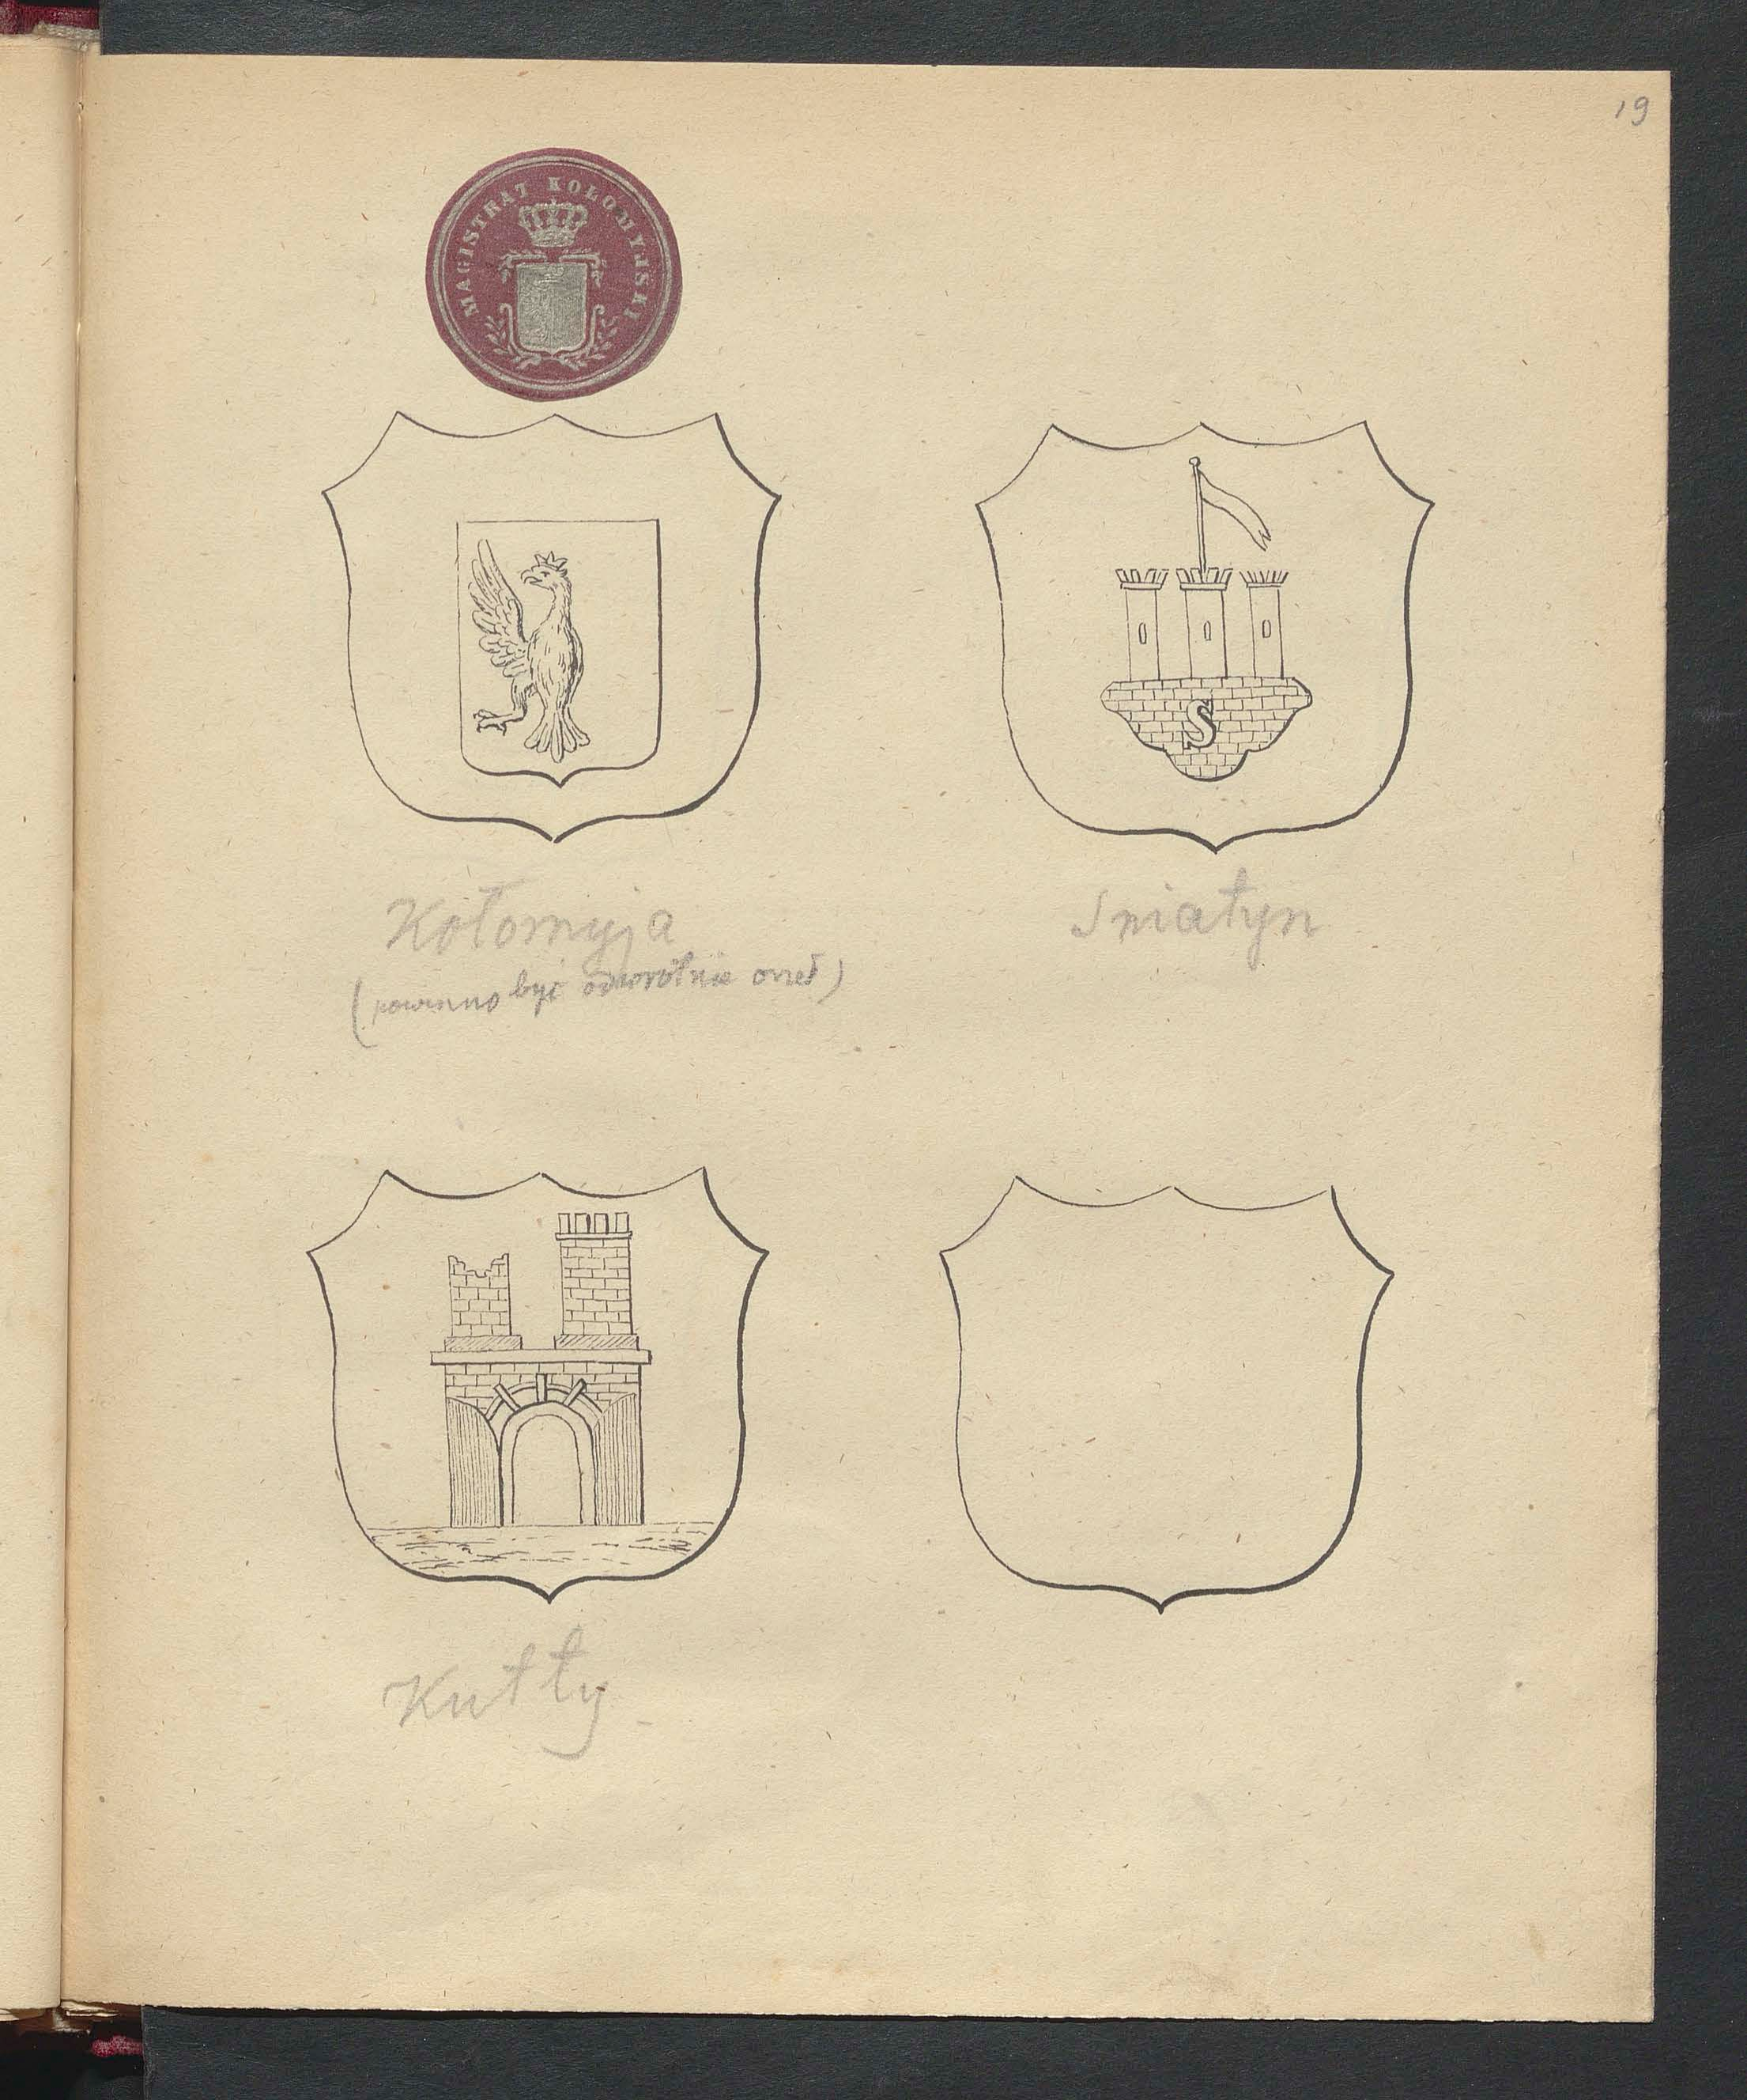 19
MAGISTRAT KOŁOMYJSKI
Kołomyja
(powinno być odwrotnie orzeł)
S
Sniatyn
Kutty